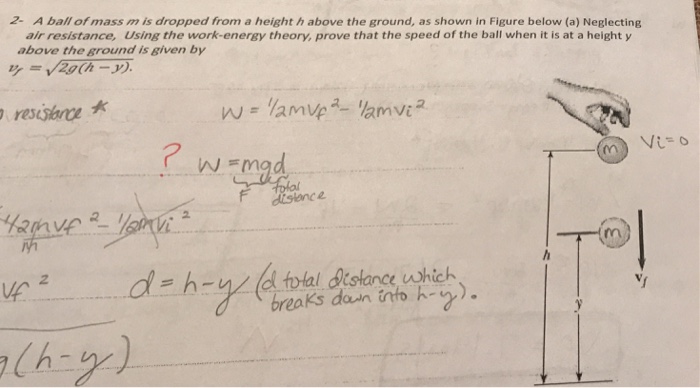 2- A ball of mass m is dropped from a height h above the ground, as shown in Figure below (a) Neglecting
air resistance, Using the work-energy theory, prove that the speed of the ball when it is at a height y
above the ground is given by
v_f = √2g(h − y).
resistance *
W = 1/2mvf² - 1/2mvi²
Vi=0
m
? W = mgd
F total
distance
1/2mvf² - 1/2mvi²
m
m
h
vf²
d = h-y (d total distance which
breaks down into h-y).
v_f
y
(h-y)